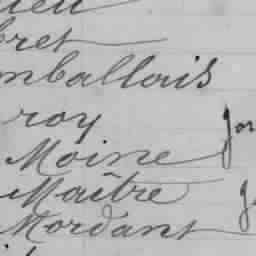 bret
mballais
roy
Moine
Maître
Mordant